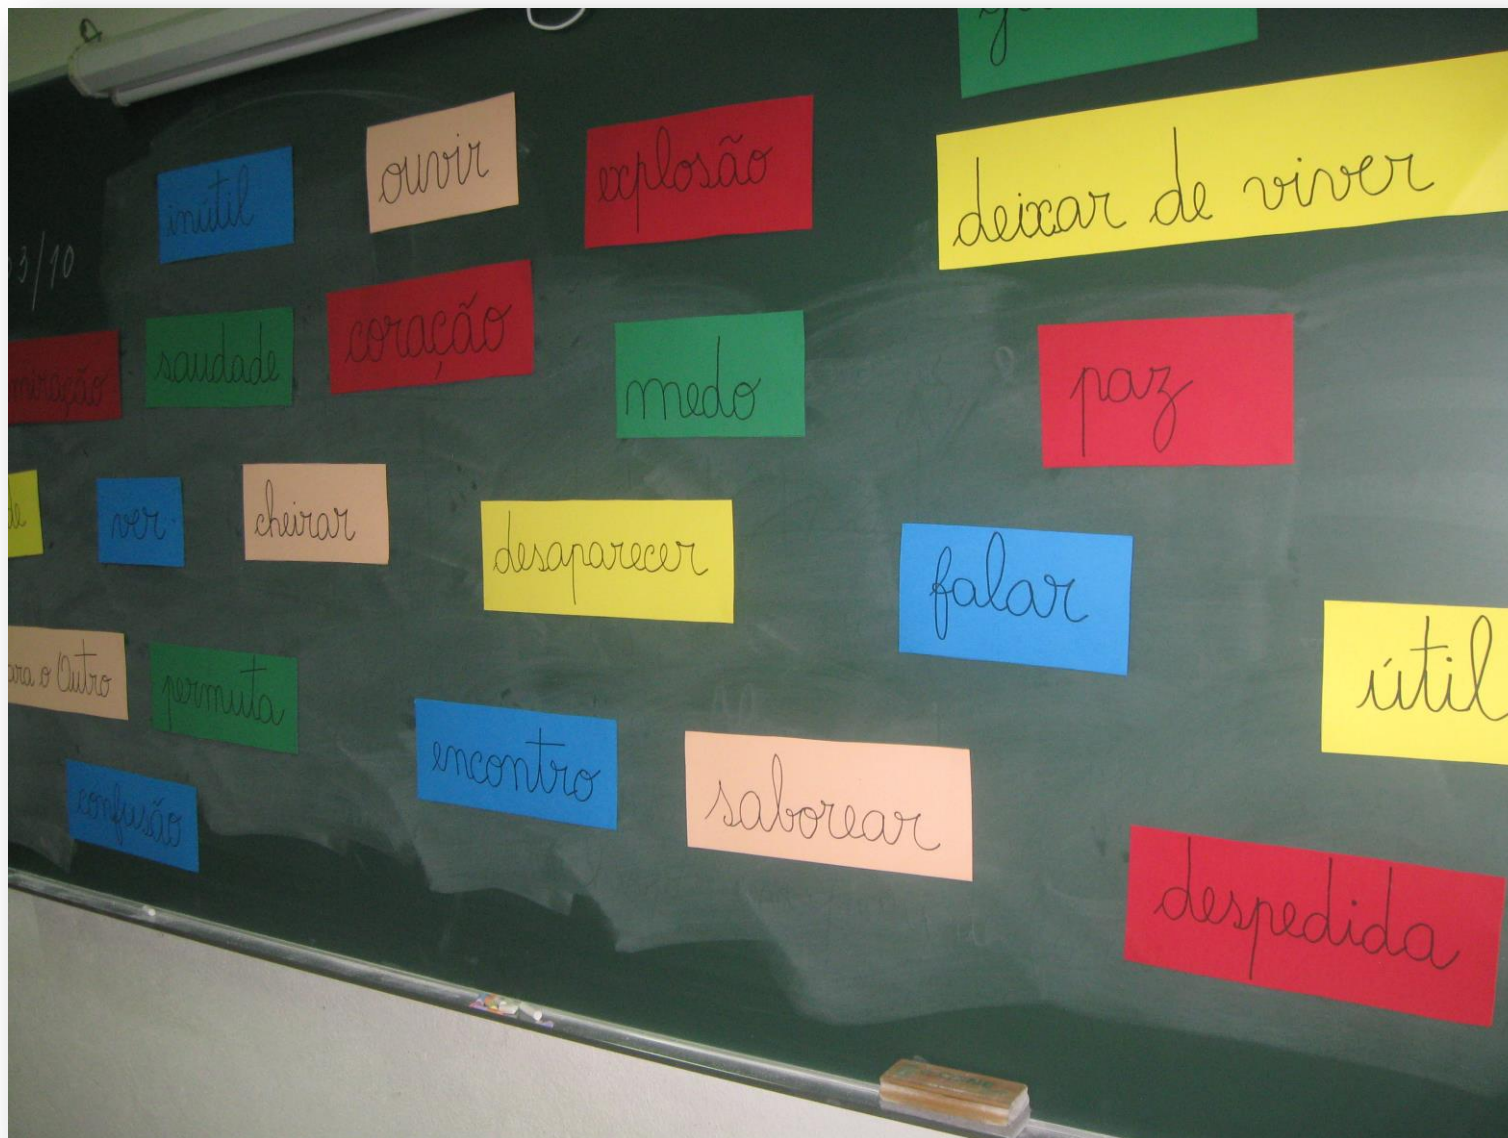 inútil
ouvir
explosão
deixar de viver
3/10
saudade
coração
medo
paz
ver
cheirar
desaparecer
falar
útil
o Outro
permuta
encontro
saborear
confusão
despedida